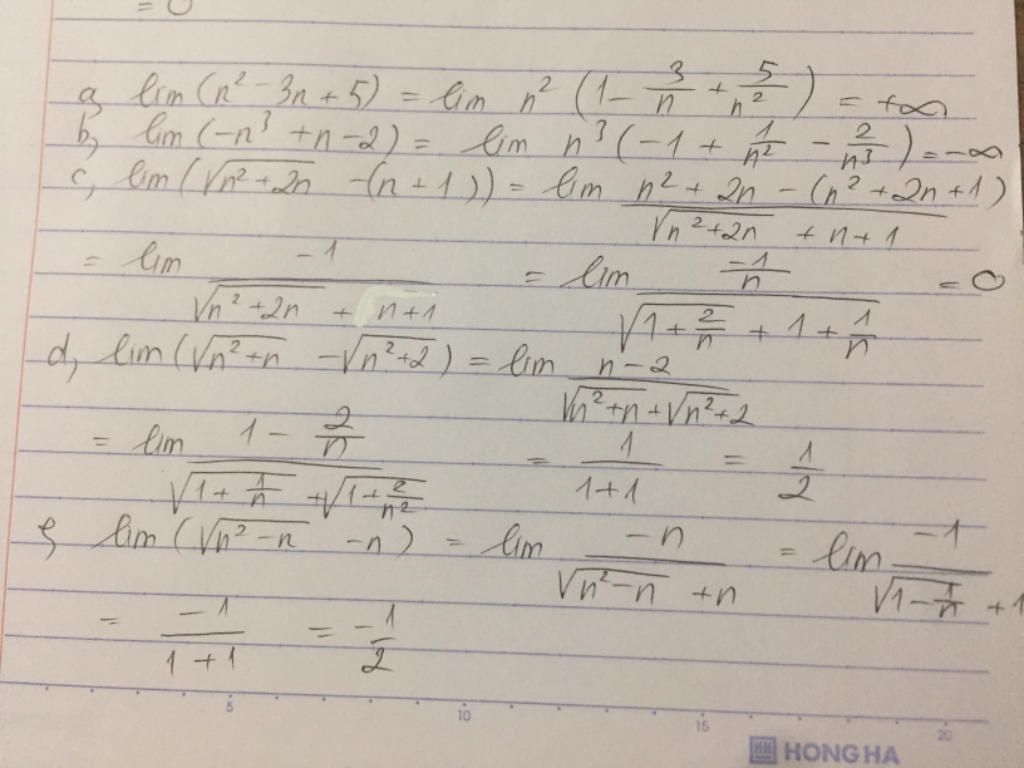 = 0
a, lim(n² - 3n + 5) = lim n² (1 - 3/n + 5/n²) = +∞
b, lim(-n³ + n - 2) = lim n³(-1 + 1/n² - 2/n³) = -∞
c, lim(√(n² + 2n) - (n + 1)) = lim (n² + 2n - (n² + 2n + 1))/(√(n² + 2n) + n + 1)
= lim -1/(√(n² + 2n) + n + 1) = lim (-1/n)/(√(1 + 2/n) + 1 + 1/n) = 0
d, lim(√(n² + n) - √(n² + 2)) = lim (n - 2)/(√(n² + n) + √(n² + 2))
= lim (1 - 2/n)/(√(1 + 1/n) + √(1 + 2/n²)) = 1/(1 + 1) = 1/2
lim(√(n² - n) - n) = lim -n/(√(n² - n) + n) = lim -1/(√(1 - 1/n) + 1)
= -1/(1 + 1) = -1/2
5 10 15 20
HONG HA